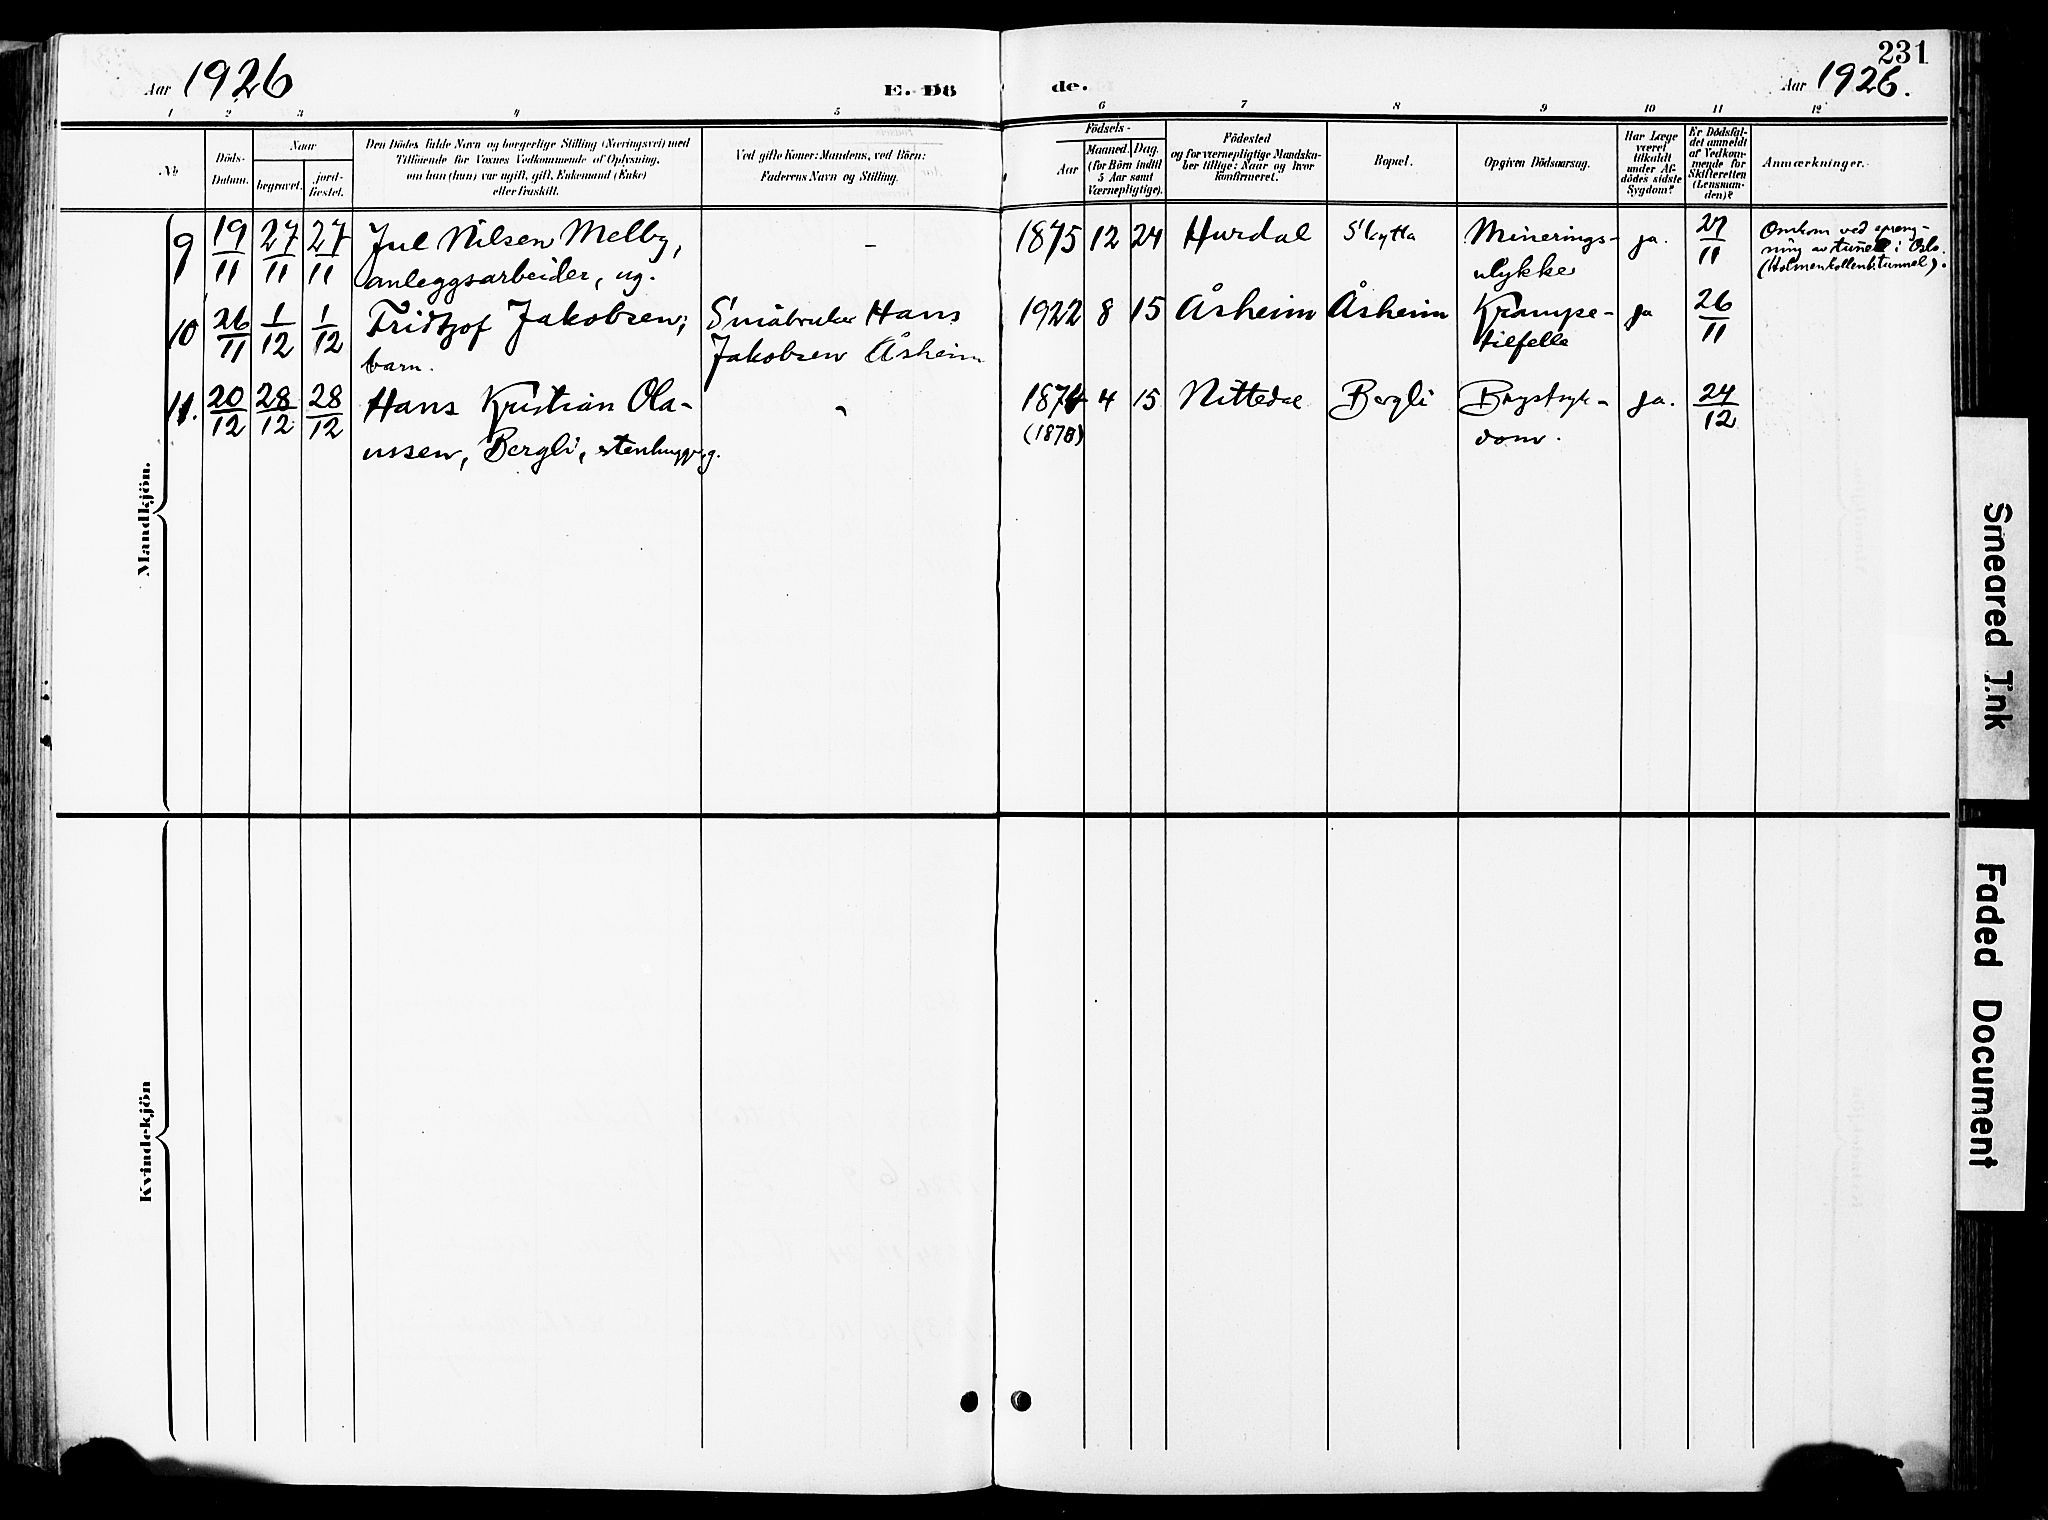 231
Aar 1926
E. Dö
de.
Aar 1926.
1 2 3 4 5 6 7 8 9 10 11 12
Nr.
Döds-
Datum.
Naar
begravet.
jord-
fæstet.
Den Dödes fulde Navn og borgerlige Stilling (Næringsvei) med
Tilföiende for Voxnes Vedkommende af Oplysning,
om han (hun) var ugift, gift, Enkemand (Enke)
eller fraskilt.
Ved gifte Koner: Mandens, ved Börn:
Faderens Navn og Stilling.
Födsels-
Aar
Maaned. Dag.
(for Börn indtil
5 Aar samt
Værnepligtige).
Födested
og for værnepligtige Mandska-
ber tillige: Naar og hvor
konfirmeret.
Bopæl.
Opgiven Dödsaarsag.
Har Læge
været
tilkaldt
under Af-
dødes sidste
Sygdom?
Er Dödsfal-
det anmeldt
af Vedkom-
mende for
Skifteretten
(Lensman-
den)?
Anmærkninger.
Mandkjön.
9 19/11 27/11 27/11 Jul Nilsen Melby,
anleggsarbeider, ug.
- 1875 12 24 Hurdal Skytta Minerings-
ulykke
ja. 27/11 Omkom ved spreng-
ning av tunell i Oslo.
(Holmenkollenb.tunnel).
10 26/11 1/12 1/12 Fridtjof Jakobsen,
barn.
Småbruker Hans
Jakobsen Åsheim
1922 8 15 Åsheim Åsheim Krampe-
tilfelle
ja 26/11
11. 20/12 28/12 28/12 Hans Kristian Ola-
ussen, Bergli, stenhugger, g.
- 1874 4 15 Nittedal Bergli Brystsyk-
dom.
(1878)
ja. 24/12
Kvindekjön
Smeared Ink
Faded Document